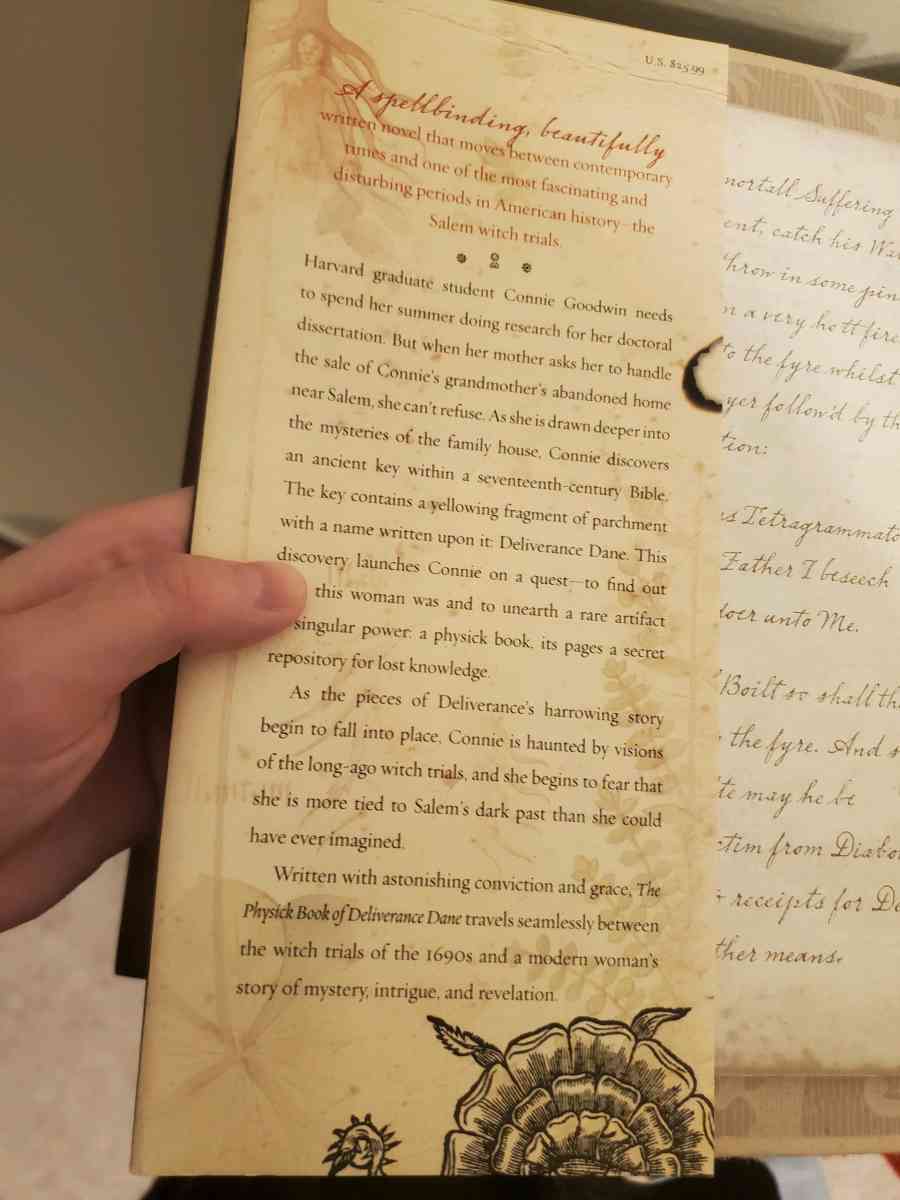 U.S. $25.99
A spellbinding, beautifully
written novel that moves between contemporary
times and one of the most fascinating and
disturbing periods in American history—the
Salem witch trials.
Harvard graduate student Connie Goodwin needs
to spend her summer doing research for her doctoral
dissertation. But when her mother asks her to handle
the sale of Connie's grandmother's abandoned home
near Salem, she can't refuse. As she is drawn deeper into
the mysteries of the family house, Connie discovers
an ancient key within a seventeenth-century Bible.
The key contains a yellowing fragment of parchment
with a name written upon it: Deliverance Dane. This
discovery launches Connie on a quest—to find out
this woman was and to unearth a rare artifact
singular power: a physick book, its pages a secret
repository for lost knowledge.
As the pieces of Deliverance's harrowing story
begin to fall into place, Connie is haunted by visions
of the long-ago witch trials, and she begins to fear that
she is more tied to Salem's dark past than she could
have ever imagined.
Written with astonishing conviction and grace, The
Physick Book of Deliverance Dane travels seamlessly between
the witch trials of the 1690s and a modern woman's
story of mystery, intrigue, and revelation.
mortall Suffering
ent, catch his
throw in some pin
a very hott fire
to the fyre whilst
yer follow'd by th
tion:
Tetragrammato
Father I beseech
doer unto Me.
Boilt so shall th
the fyre. And s
may he be
ctim from Diabo
receipts for De
ther means.